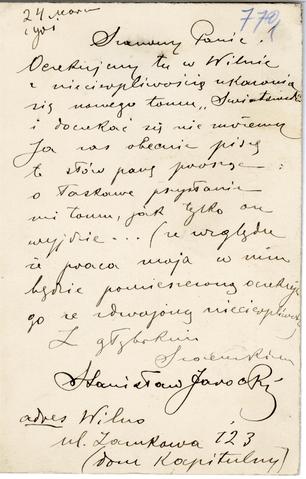 24 Marca
1901
770
Szanowny Panie!
Oczekujemy tu w Wilnie
z niecierpliwością ukazania
się nowego tomu „Światowida"
i doczekać się nie możemy
Ja zaś obecnie piszę
te słów parę prosząc
o łaskawe przysłanie
mi tomu, jak tylko on
wyjdzie... (ze względu
że praca moja w nim
będzie pomieszczona oczekuję
go ze zdwojoną niecierpliwością
Z głębokim
Szacunkiem
Stanisław Jarocki
adres Wilno
ul. Zamkowa 123
(dom Kapitulny)